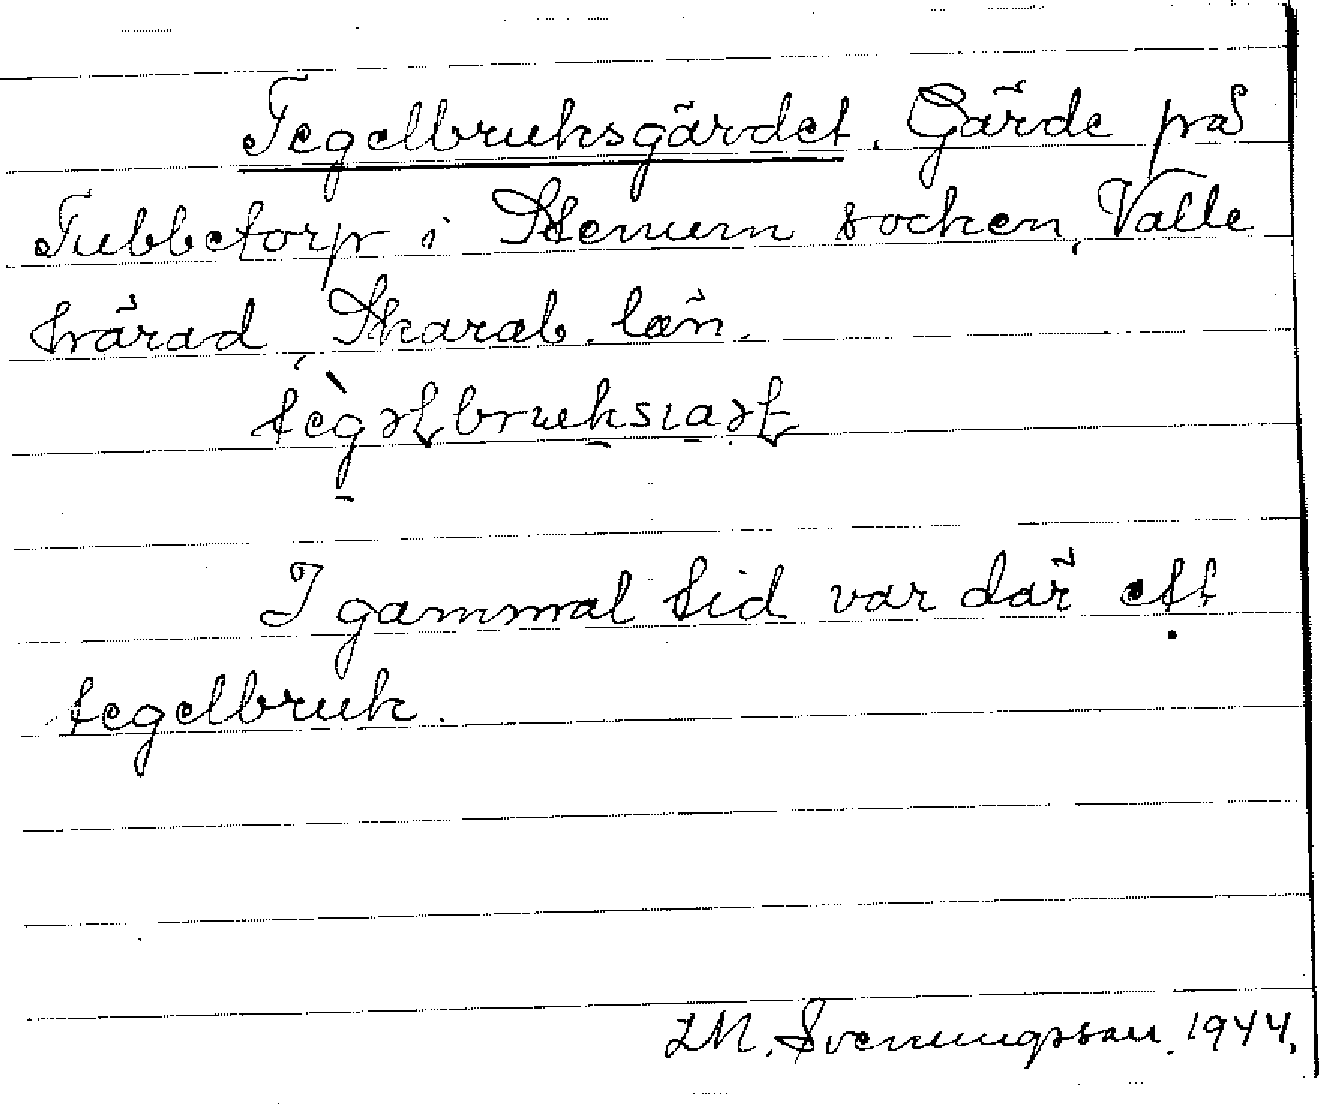 Tegelbruksgärdet. Gärde på
Tubbetorp i Stenum socken, Valle
härad, Skarab. län.
I gammal tid var där ett
tegelbruk.
M. Svenungsson. 1944.